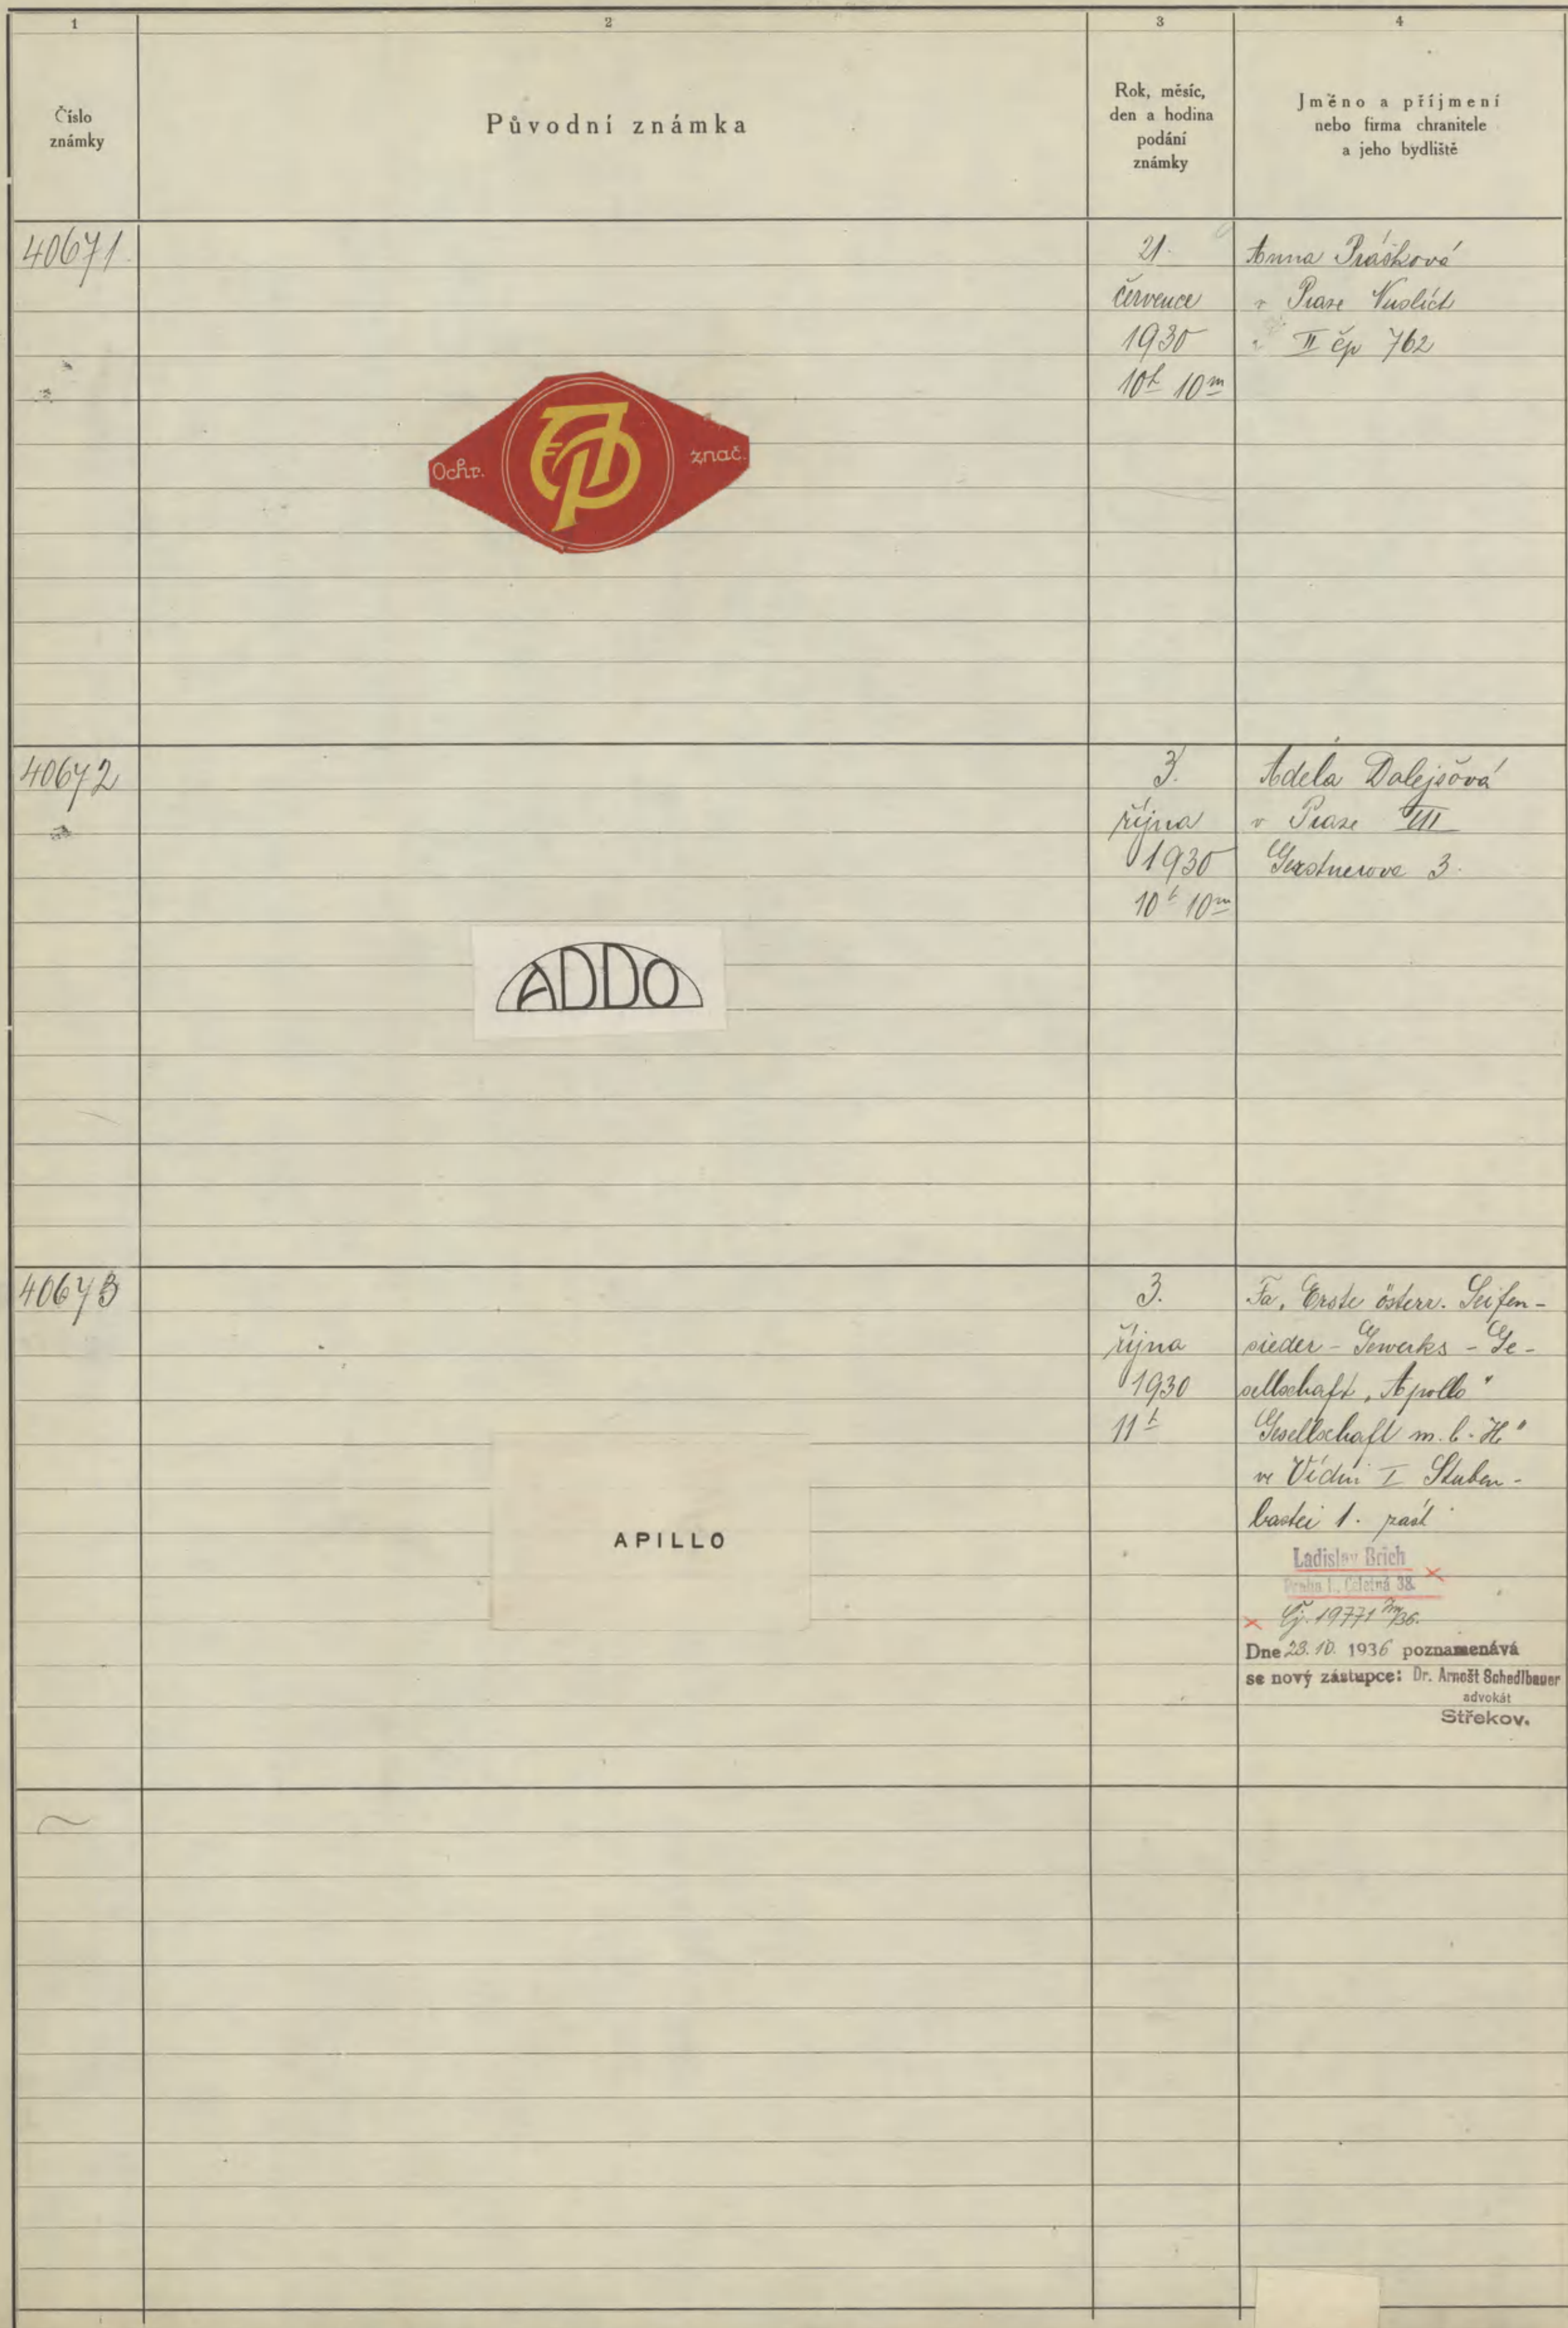 1
2
3
4
Číslo
známky
Původní známka
Rok, měsíc,
den a hodina
podání
známky
Jméno a příjmení
nebo firma chranitele
a jeho bydliště
40671
21.
července
1930
10h 10m
Anna Prášková
v Praze Nuslích
II čp 762
Ochr.
znač.
40672
3.
října
1930
10h 10m
Adela Dalejšová
v Praze VII
Gerstnerova 3.
ADDO
40673
3.
října
1930
11h
Fa. Erste österr. Seifen-
sieder - Gewerks - Ge-
sellschaft „Apollo"
Gesellschaft m. b. H"
ve Vídni I Stuben-
bastei 1. zast
APILLO
Ladislav Brich
Praha I., Celetná 38.
Čj. 19771/36.
Dne 23. 10. 1936 poznamenává
se nový zástupce: Dr. Arnošt Schedlbauer
advokát
Střekov.